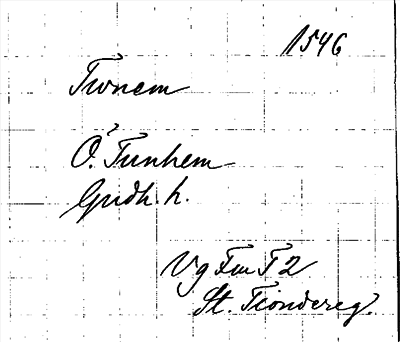 1546
Tivnem
Ö. Tunhem
Gudh. h.
Vg Fm T 2
St. Tiondereg.